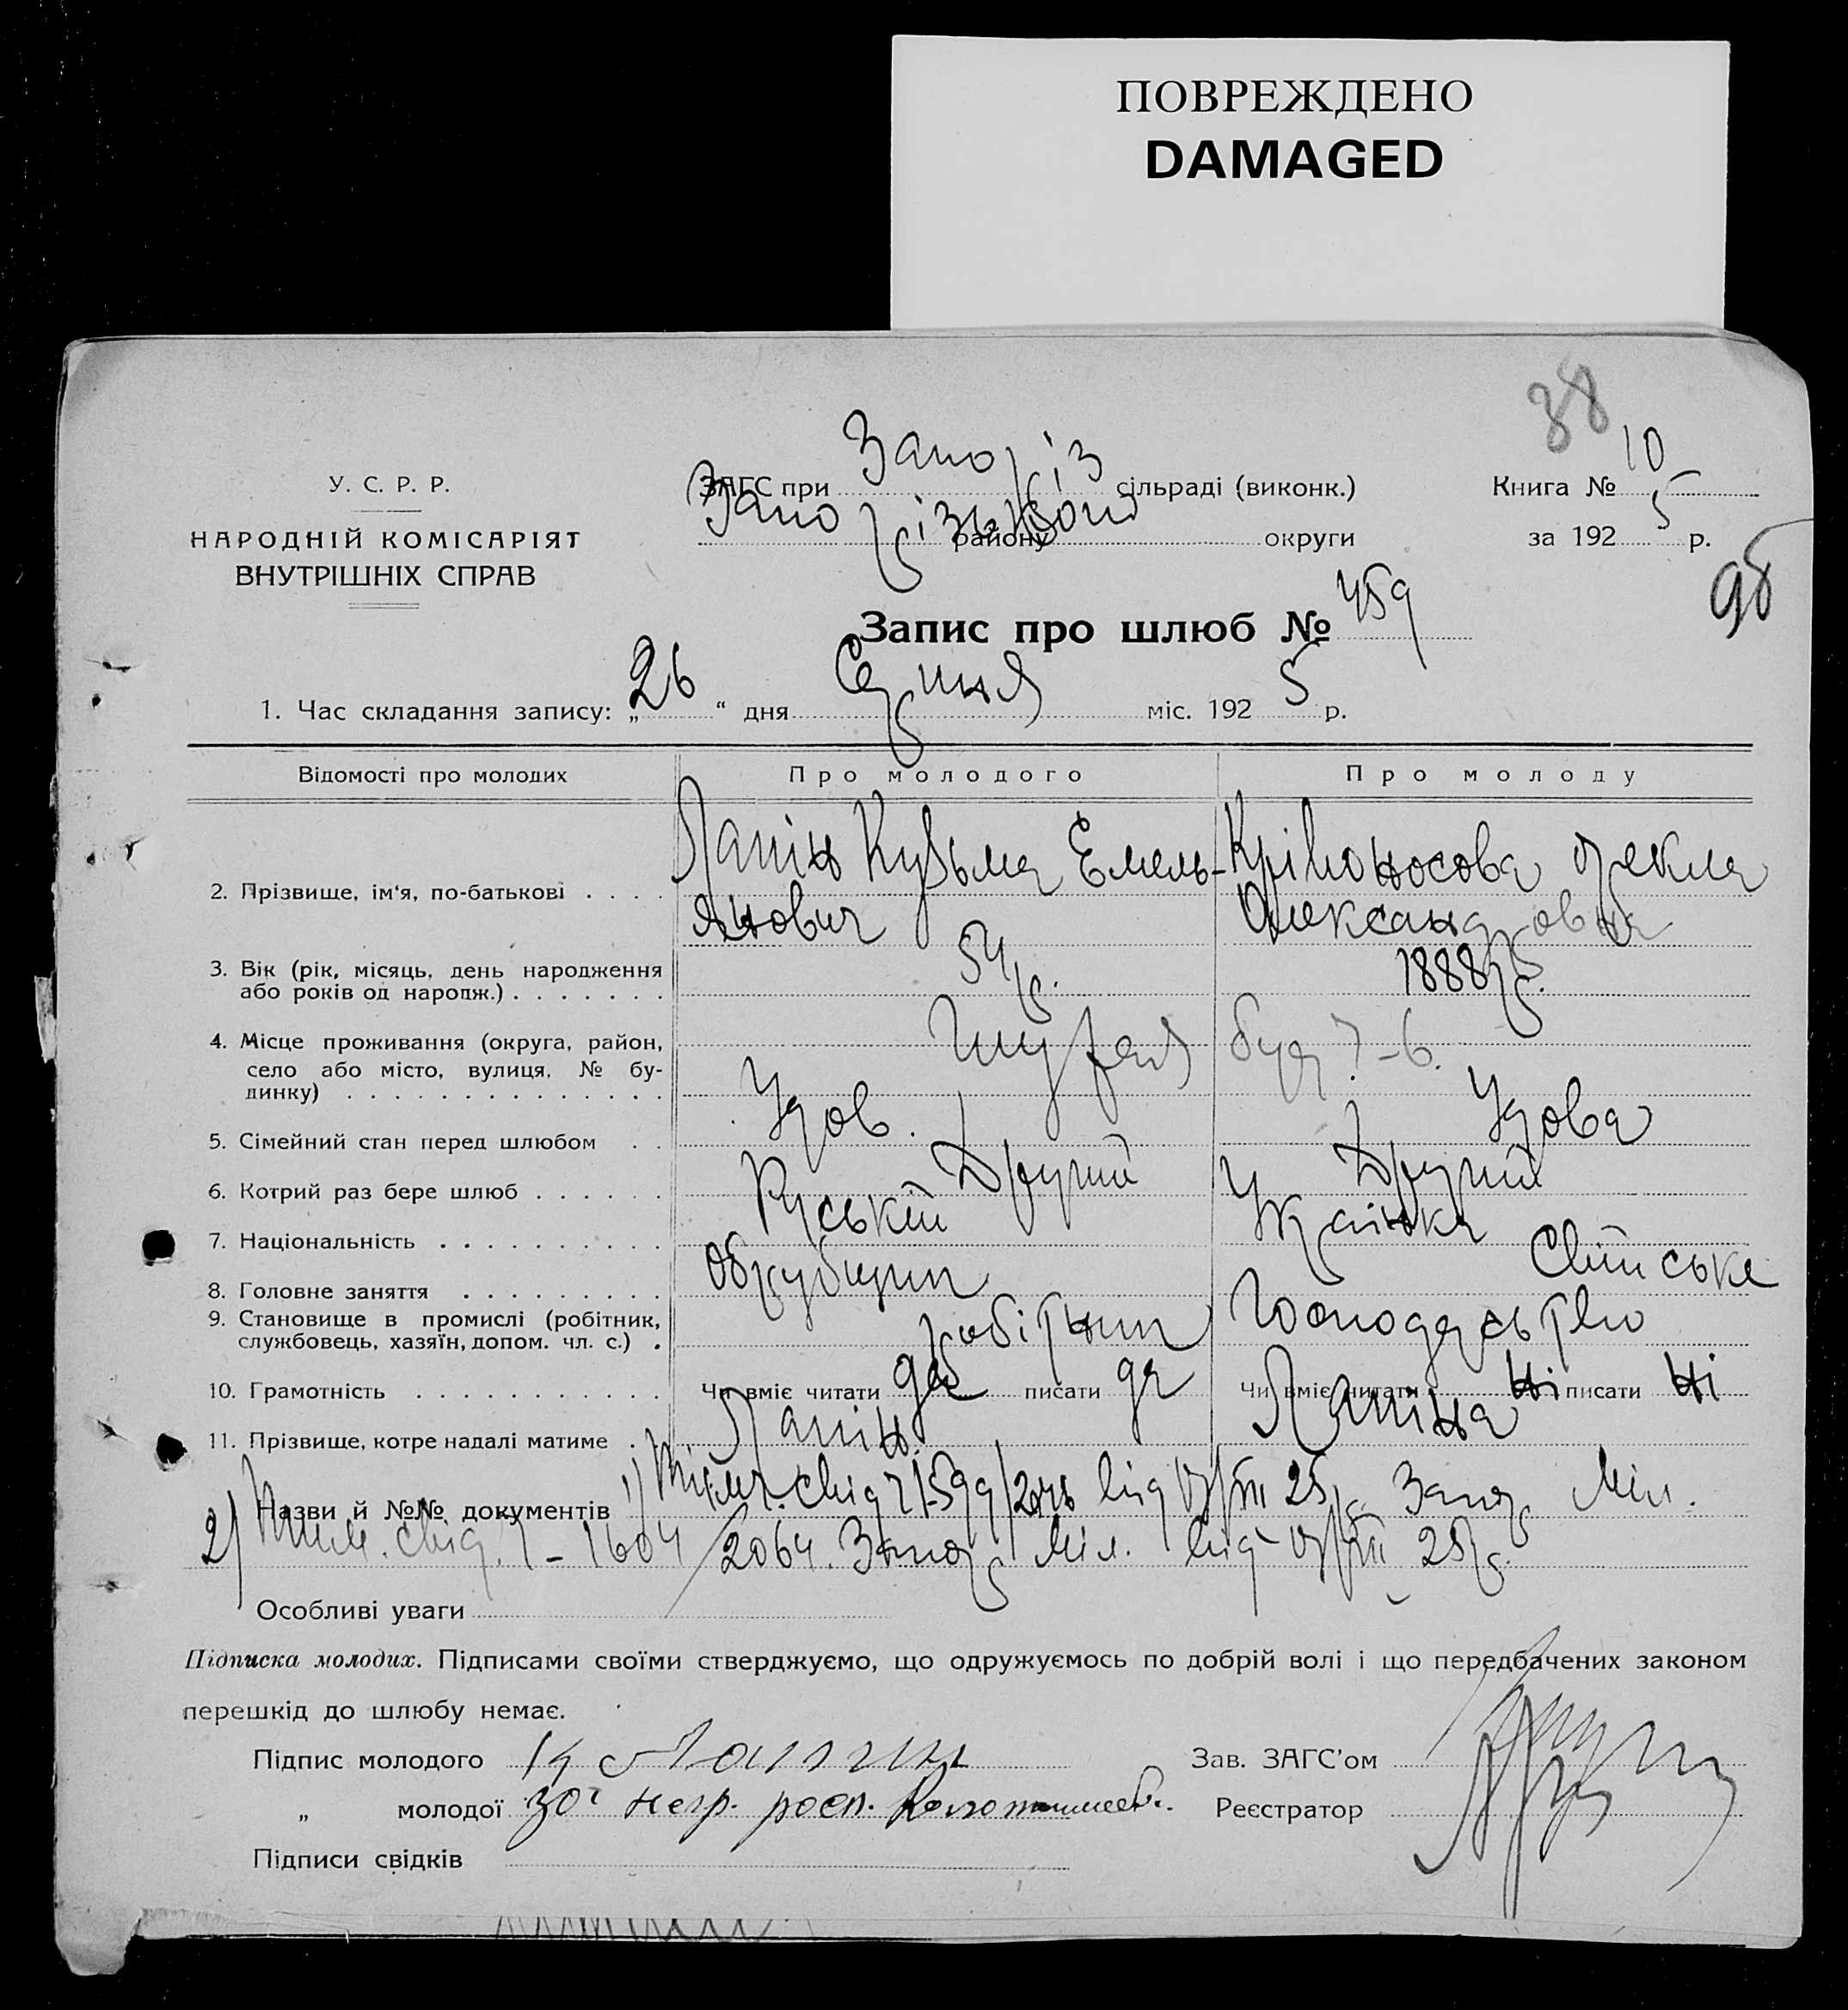 ПОВРЕЖДЕНО
DAMAGED
38
У. С. Р. Р.
НАРОДНІЙ КОМІСАРІЯТ
ВНУТРІШНІХ СПРАВ
ЗАГС при Запоріз сільраді (виконк.)
Запорізькой району округи
Книга № 10
за 1925 р.
Запис про шлюб № 459
1. Час складання запису: „26“ дня Серпня міс. 1925 р.
Відомості про молодих Про молодого Про молоду
2. Прізвище, ім'я, по-батькові . . . . Лапін Кузьма Емель- Крівоносова Текла
янович Олександровна
3. Вік (рік, місяць, день народження
або років од народж.) . . . . . . . 54 р. 1888 р.
4. Місце проживання (округа, район,
село або місто, вулиця, № бу-
динку) . . . . . . . . . . . . . . буд 7-6.
5. Сімейний стан перед шлюбом . . Удов. Удова
6. Котрий раз бере шлюб . . . . . . Другий Другий
7. Національність . . . . . . . . . . Руській Украінка
8. Головне заняття . . . . . . . . . Обрубщик Свійське
9. Становище в промислі (робітник,
службовець, хазяїн, допом. чл. с.) . робітник Господарьство
10. Грамотність . . . . . . . . . . . Чи вміє читати да писати да Чи вміє читати Ні писати Ні
11. Прізвище, котре надалі матиме . Лапін. Лапіна
Назви й №№ документів 1) Тим. свід. Запор. Міл.
2) Тим. свід. - 1604/2064. Запор. Міл. від VIII 25 р.
Особливі уваги
Підписка молодих. Підписами своїми стверджуємо, що одружуємось по добрій волі і що передбачених законом
перешкід до шлюбу немає.
Підпис молодого К Лапин Зав. ЗАГС'ом
„ молодої за негр. росп. Реєстратор
Підписи свідків